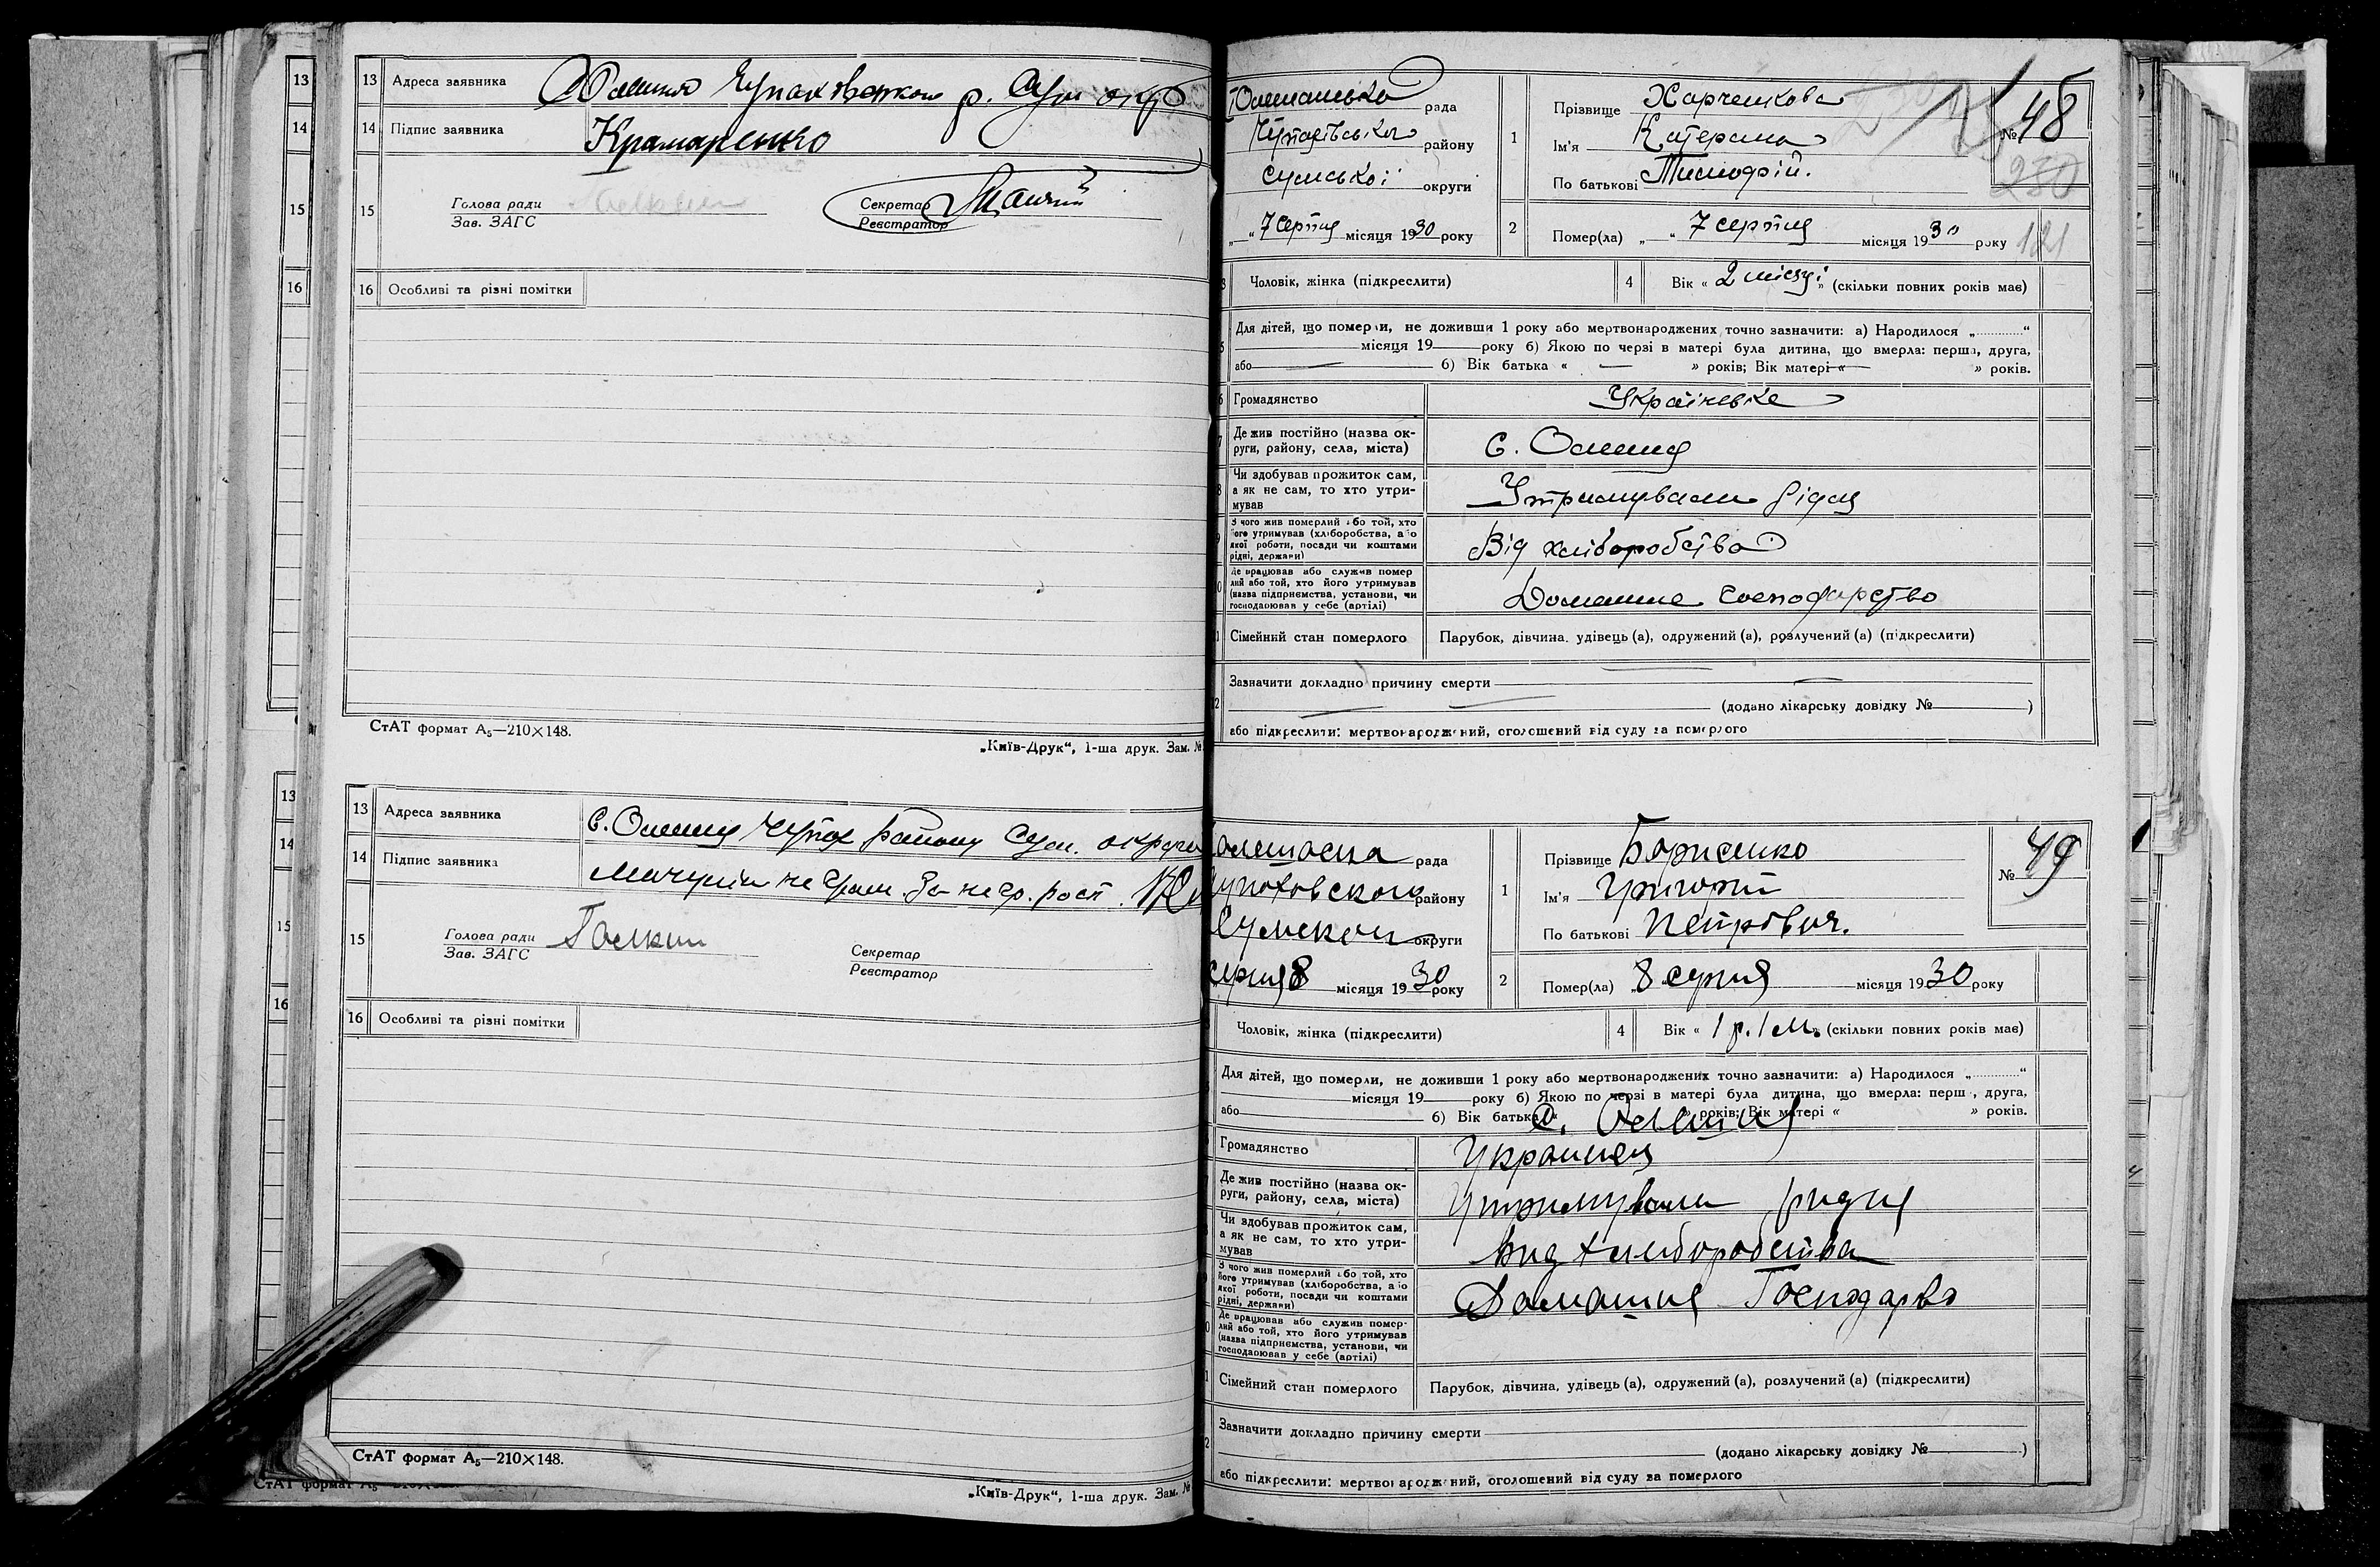 13
14
15
16
13 Адреса заявника Олешня Чупаховского р. Сум окр
14 Підпис заявника Крамаренко
15 Голова ради
Зав. ЗАГС
Секретар
Реєстратор
16 Особливі та різні помітки
СтАТ формат А₅—210×148.
„Київ-Друк“, 1-ша друк. Зам. №
13
14
15
16
13 Адреса заявника с. Олешня Чупах району Сум. округи
14 Підпис заявника неграм. за негр. росп.
15 Голова ради Галкин
Зав. ЗАГС
Секретар
Реєстратор
16 Особливі та різні помітки
СтАТ формат А₅—210×148.
„Київ-Друк“, 1-ша друк. Зам. №
СтАТ формат А₅
Олешанська рада
Чупахівського району
Сумської округи
„ “ 7 серпня місяця 1930 року
1 Прізвище Харченкова
Ім'я Катерина
По батькові Тимофій.
№ 48
280
121
2 Помер(ла) „ “ 7 серпня місяця 1930 року
Чоловік, жінка (підкреслити)
4 Вік « 2 місяці » (скільки повних років має)
Для дітей, що померли, не доживши 1 року або мертвонароджених точно зазначити: а) Народилося „............“
місяця 19 року б) Якою по черзі в матері була дитина, що вмерла: перша, друга,
або б) Вік батька « — » років; Вік матері « — » років.
Громадянство Українське
Де жив постійно (назва ок-
руги, району, села, міста) с. Олешня
Чи здобував прожиток сам,
а як не сам, то хто утри-
мував Утримували рідня
З чого жив померлий або той, хто
його утримував (хліборобства, або
якої роботи, посади чи коштами
рідні, держави) Від хліборобства
Де працював або служив помер
лий або той, хто його утримував
(назва підприємства, установи, чи
господарював у себе (артілі) Домашнє господарство
Сімейний стан померлого Парубок, дівчина, удівець (а), одружений (а), розлучений (а) (підкреслити)
Зазначити докладно причину смерти
(додано лікарську довідку № )
або підкреслити: мертвонароджений, оголошений від суду за померлого
рада
Чупаховского району
Сумской округи
серпня 8 місяця 1930 року
1 Прізвище Борисенко
Ім'я Григорий
По батькові Петрович.
№ 49
2 Помер(ла) 8 серпня місяця 1930 року
Чоловік, жінка (підкреслити)
4 Вік « 1 р. 1 м. » (скільки повних років має)
Для дітей, що померли, не доживши 1 року або мертвонароджених точно зазначити: а) Народилося „............“
місяця 19 року б) Якою по черзі в матері була дитина, що вмерла: перша, друга,
або б) Вік батька « » років; Вік матері « » років.
с. Олешня
Громадянство Украинец
Де жив постійно (назва ок-
руги, району, села, міста) Утримували ридня
Чи здобував прожиток сам,
а як не сам, то хто утри-
мував Вид хлиборобства
З чого жив померлий або той, хто
його утримував (хліборобства, або
якої роботи, посади чи коштами
рідні, держави) Домашня Господарво
Де працював або служив помер-
лий або той, хто його утримував
(назва підприємства, установи, чи
господарював у себе (артілі)
Сімейний стан померлого Парубок, дівчина, удівець (а), одружений (а), розлучений (а) (підкреслити)
Зазначити докладно причину смерти
(додано лікарську довідку № )
або підкреслити: мертвонароджений, оголошений від суду за померлого